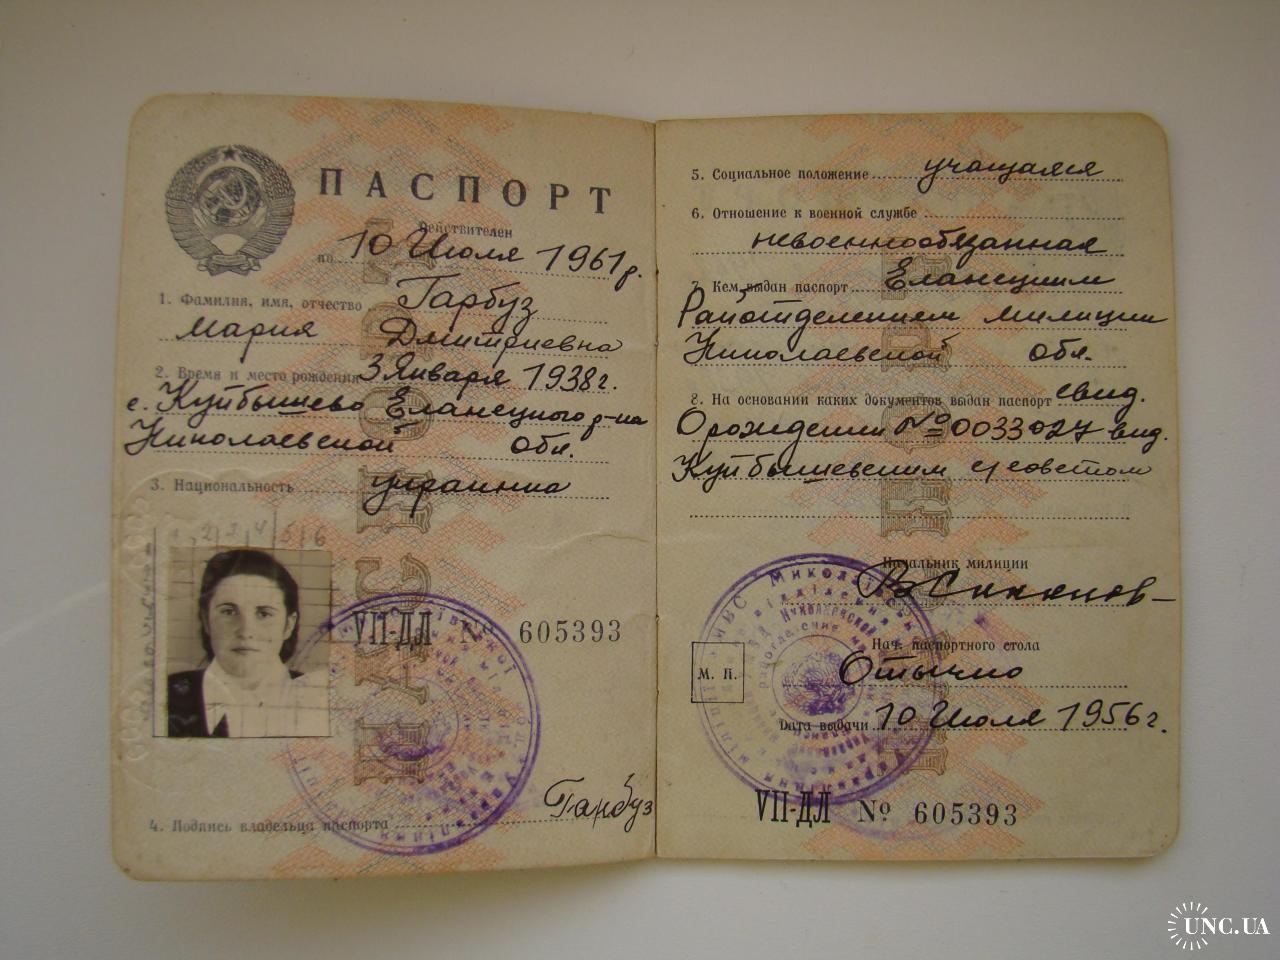 ПАСПОРТ
Действителен
по 10 Июля 1961 г.
1. Фамилия, имя, отчество Гарбуз
Мария Дмитриевна
2. Время и место рождения 3 Января 1938 г.
с. Куйбышево Еланецкого р-на
Николаевской обл.
3. Национальность украинка
1 2 3 4 5 6
VII-ДЛ № 605393
4. Подпись владельца паспорта Гарбуз
5. Социальное положение учащаяся
6. Отношение к военной службе
невоеннообязанная
7. Кем выдан паспорт Еланецким
Райотделением милиции
Николаевской обл.
8. На основании каких документов выдан паспорт свид.
О рождении № 0033027 выд.
Куйбышевским с/советом
Начальник милиции
Нач. паспортного стола
М. П.
Дата выдачи 10 Июля 1956 г.
VII-ДЛ № 605393
UNC.UA